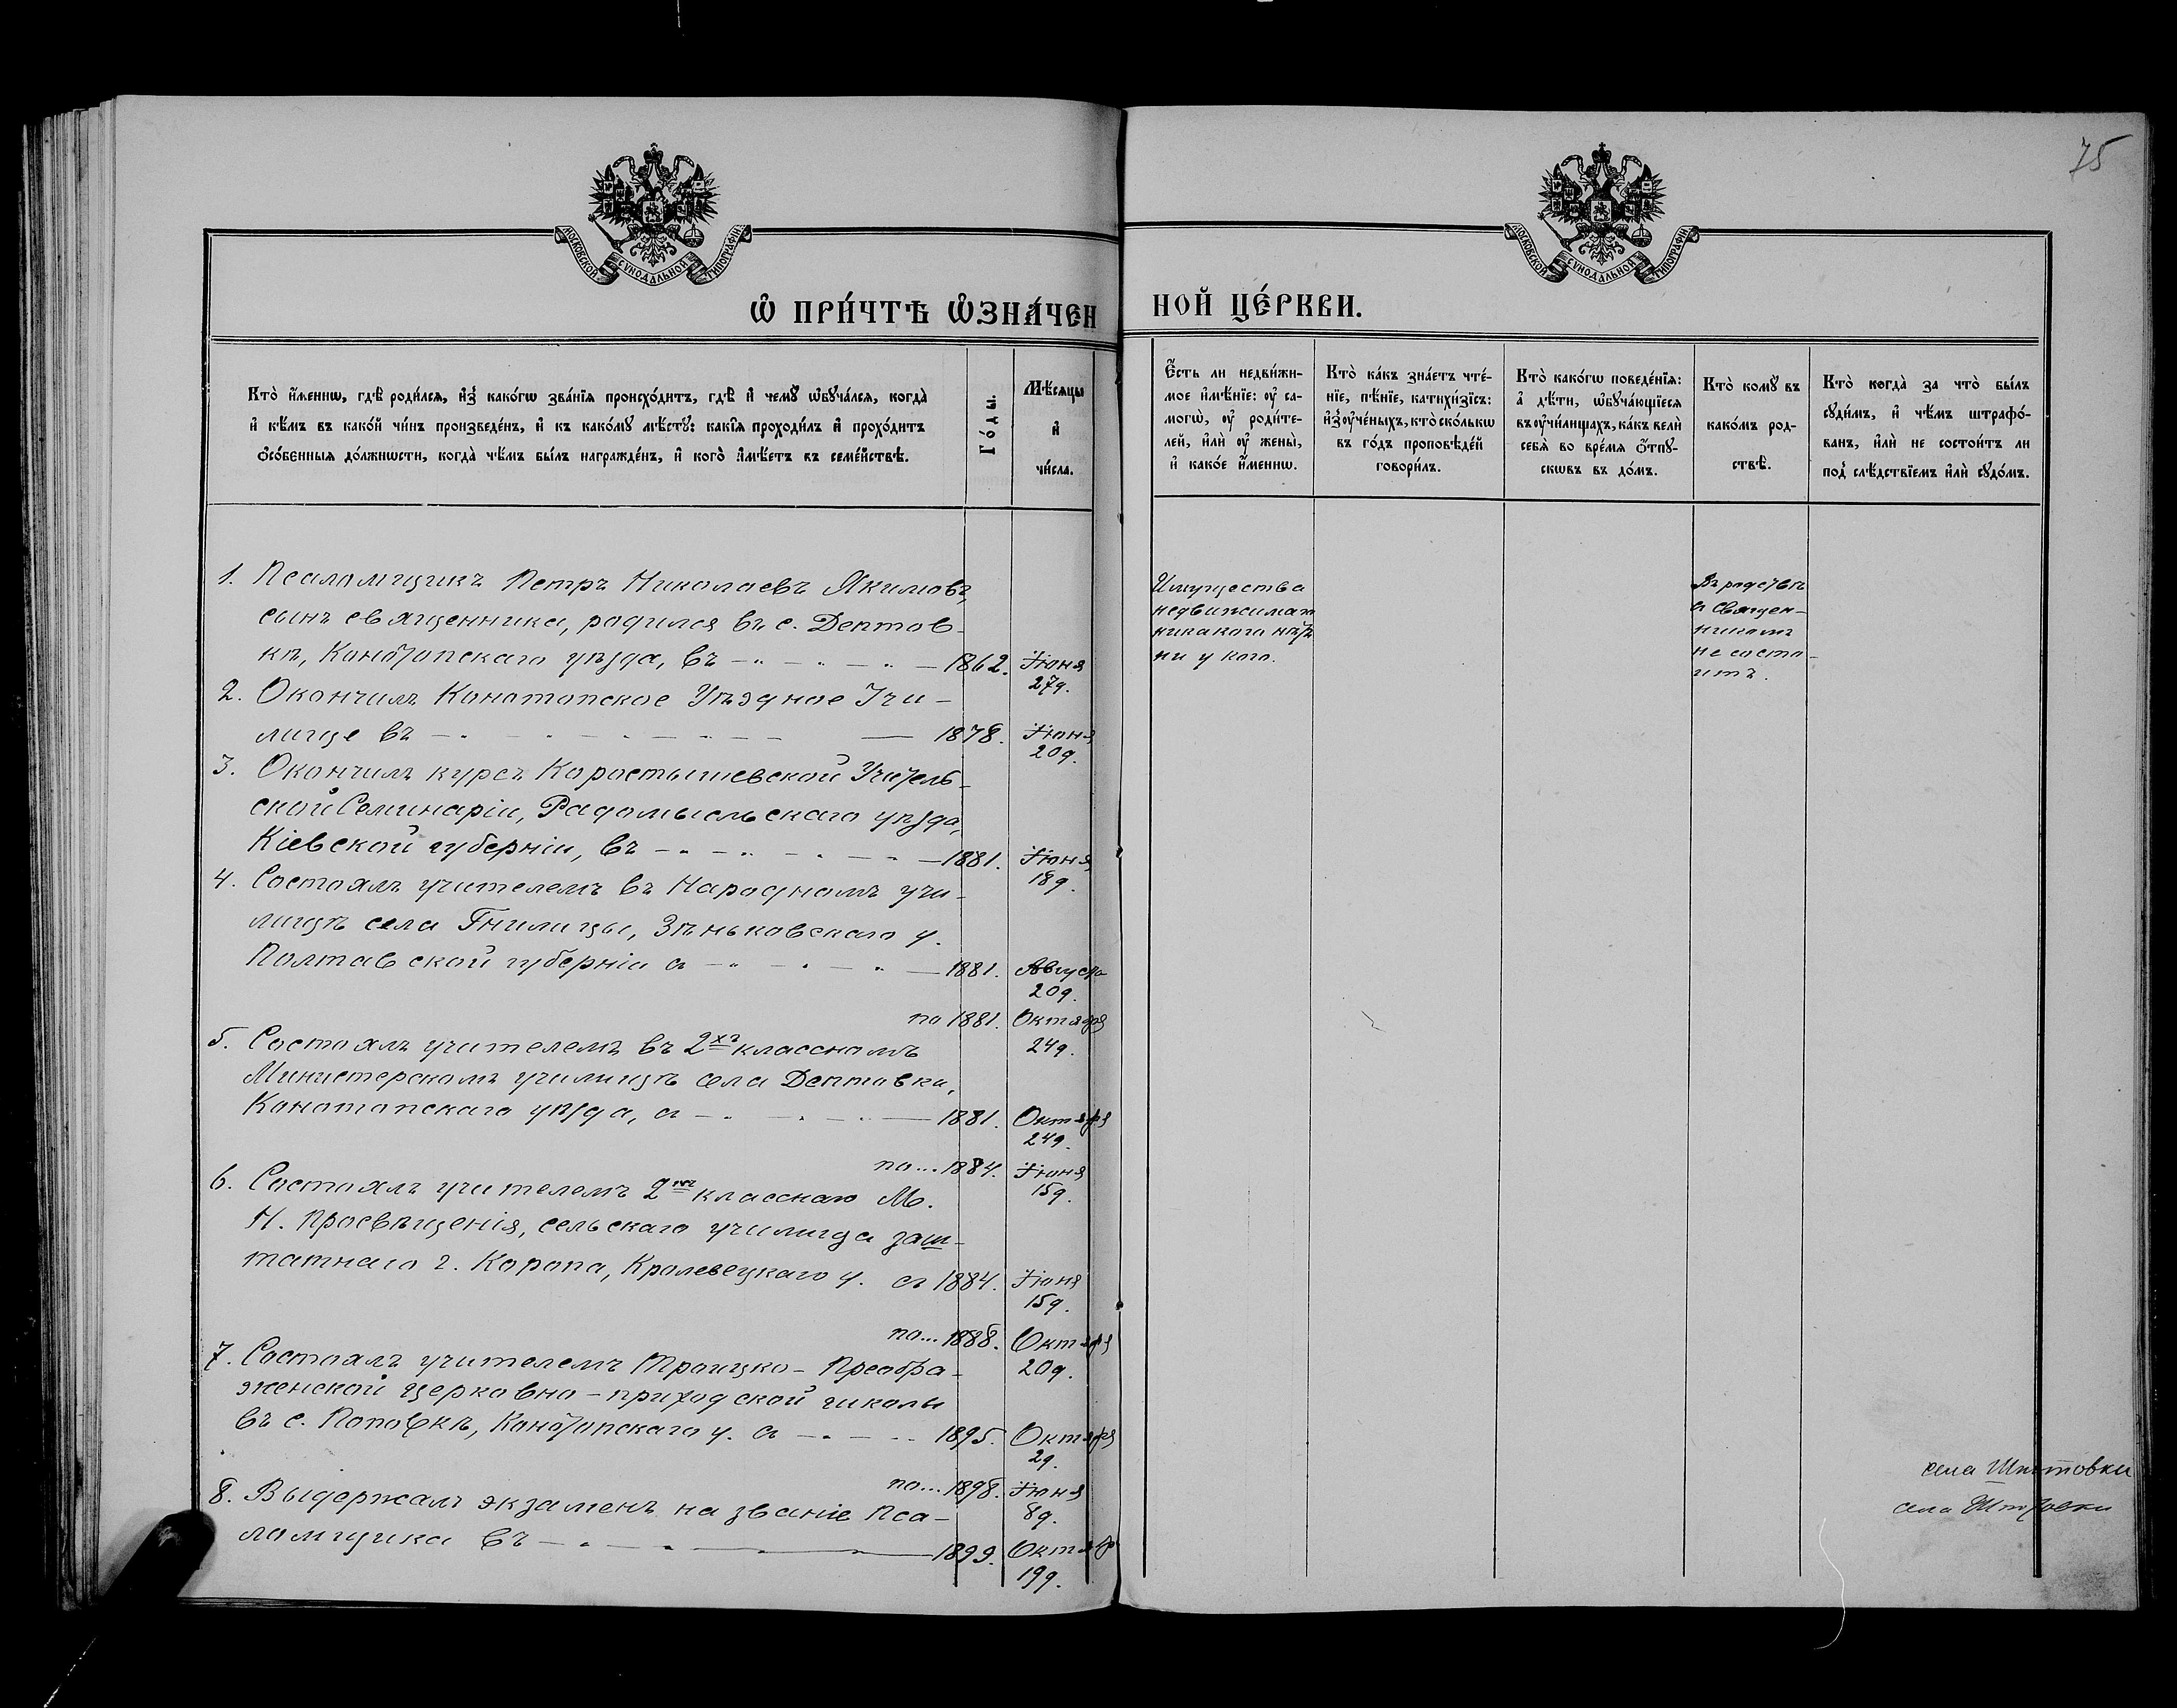 75
МОСКОВСКОЙ СѴНОДАЛЬНОЙ ТИПОГРАФІИ
МОСКОВСКОЙ СѴНОДАЛЬНОЙ ТИПОГРАФІИ
Ѡ҆ ПРИ́ЧТѢ Ѡ҆ЗНА́ЧЕН НОЙ ЦЕ́РКВИ.
Кто̀ и҆́меннѡ, гдѣ̀ роди́лсѧ, и҆з̾ како́гѡ зва́нїѧ происхо́дитъ, гдѣ̀ и҆ чемꙋ̀ ѡ҆бꙋча́лсѧ, когда̀
и҆ кѣ́мъ въ како́й чи́нъ произведе́нъ, и҆ къ како́мꙋ мѣ́стꙋ: какі̑ѧ проходи́лъ и҆ прохо́дитъ
ѻ҆со́бенныѧ до́лжнѡсти, когда̀ чѣ́мъ бы́лъ награжде́нъ, и҆ кого̀ и҆мѣ́етъ въ семе́йствѣ.
Го́ды.
Мѣ́сѧцы
и҆
чи́сла.
Е҆́сть ли недви́жи-
мое и҆мѣ́нїе: ᲂу҆ са-
могѡ̀, ᲂу҆ роди́те-
лей, и҆лѝ ᲂу҆ жены̀,
и҆ како́е и҆́меннѡ.
Кто̀ ка́къ зна́етъ чте́-
нїе, пѣ́нїе, катихи́зїсъ:
и҆з̾ ᲂу҆че́ныхъ, кто̀ ско́лькѡ
въ го́дъ проповѣ́дей
говори́лъ.
Кто̀ како́гѡ поведе́нїѧ:
а҆ дѣ́ти, ѡ҆бꙋча́ющїесѧ
въ ᲂу҆чи́лищахъ, ка́къ велѝ
себѧ̀ во вре́мѧ ѻ҆́тпꙋ-
скѡвъ въ до́мъ.
Кто̀ комꙋ̀ въ
како́мъ род-
ствѣ̀.
Кто̀ когда̀ за что̀ бы́лъ
сꙋди́мъ, и҆ чѣ́мъ штрафо́-
ванъ, и҆лѝ не состои́тъ ли
под̾ слѣ́дствїемъ и҆лѝ сꙋдо́мъ.
1. Псаломщикъ Петръ Николаевъ Якимовъ,
сынъ священника, родился въ с. Дептов-
кѣ, Конотопскаго уѣзда, въ — 1862. Іюня
27 д.
2. Окончилъ Конотопское Уѣздное Учи-
лище въ — 1878. Іюня
20 д.
3. Окончилъ курсъ Коростышевской Учитель-
ской Семинаріи, Радомысльскаго уѣзда,
Кіевской губерніи, въ — 1881. Іюня
18 д.
4. Состоялъ учителемъ въ Народномъ учи-
лищѣ села Гнилицы, Зѣньковскаго у.
Полтавской губерніи съ — 1881. Августа
20 д.
по 1881. Октября
24 д.
5. Состоялъ учителемъ въ 2хъ классномъ
Министерскомъ училищѣ села Дептовки,
Конотопскаго уѣзда, съ — 1881. Октября
24 д.
по... 1884. Іюня
15 д.
6. Состоялъ учителемъ 2хъ класснаго М.
Н. Просвѣщенія, сельскаго училища заш-
татнаго г. Коропа, Кролевецкаго у. съ 1884. Іюня
15 д.
по... 1888. Октября
20 д.
7. Состоялъ учителемъ Троицко-Преобра-
женской церковно-приходской школы
въ с. Поповкѣ, Конотопскаго у. съ — 1895. Октября
2 д.
по... 1898. Іюня
8 д.
8. Выдержалъ экзаменъ на званіе Пса-
ломщика въ — 1899. Октяб
19 д.
Имущества
недвижимаго
никакого нѣтъ
ни у кого.
Въ родствѣ
съ священ-
никомъ
не состо-
итъ.
села
села